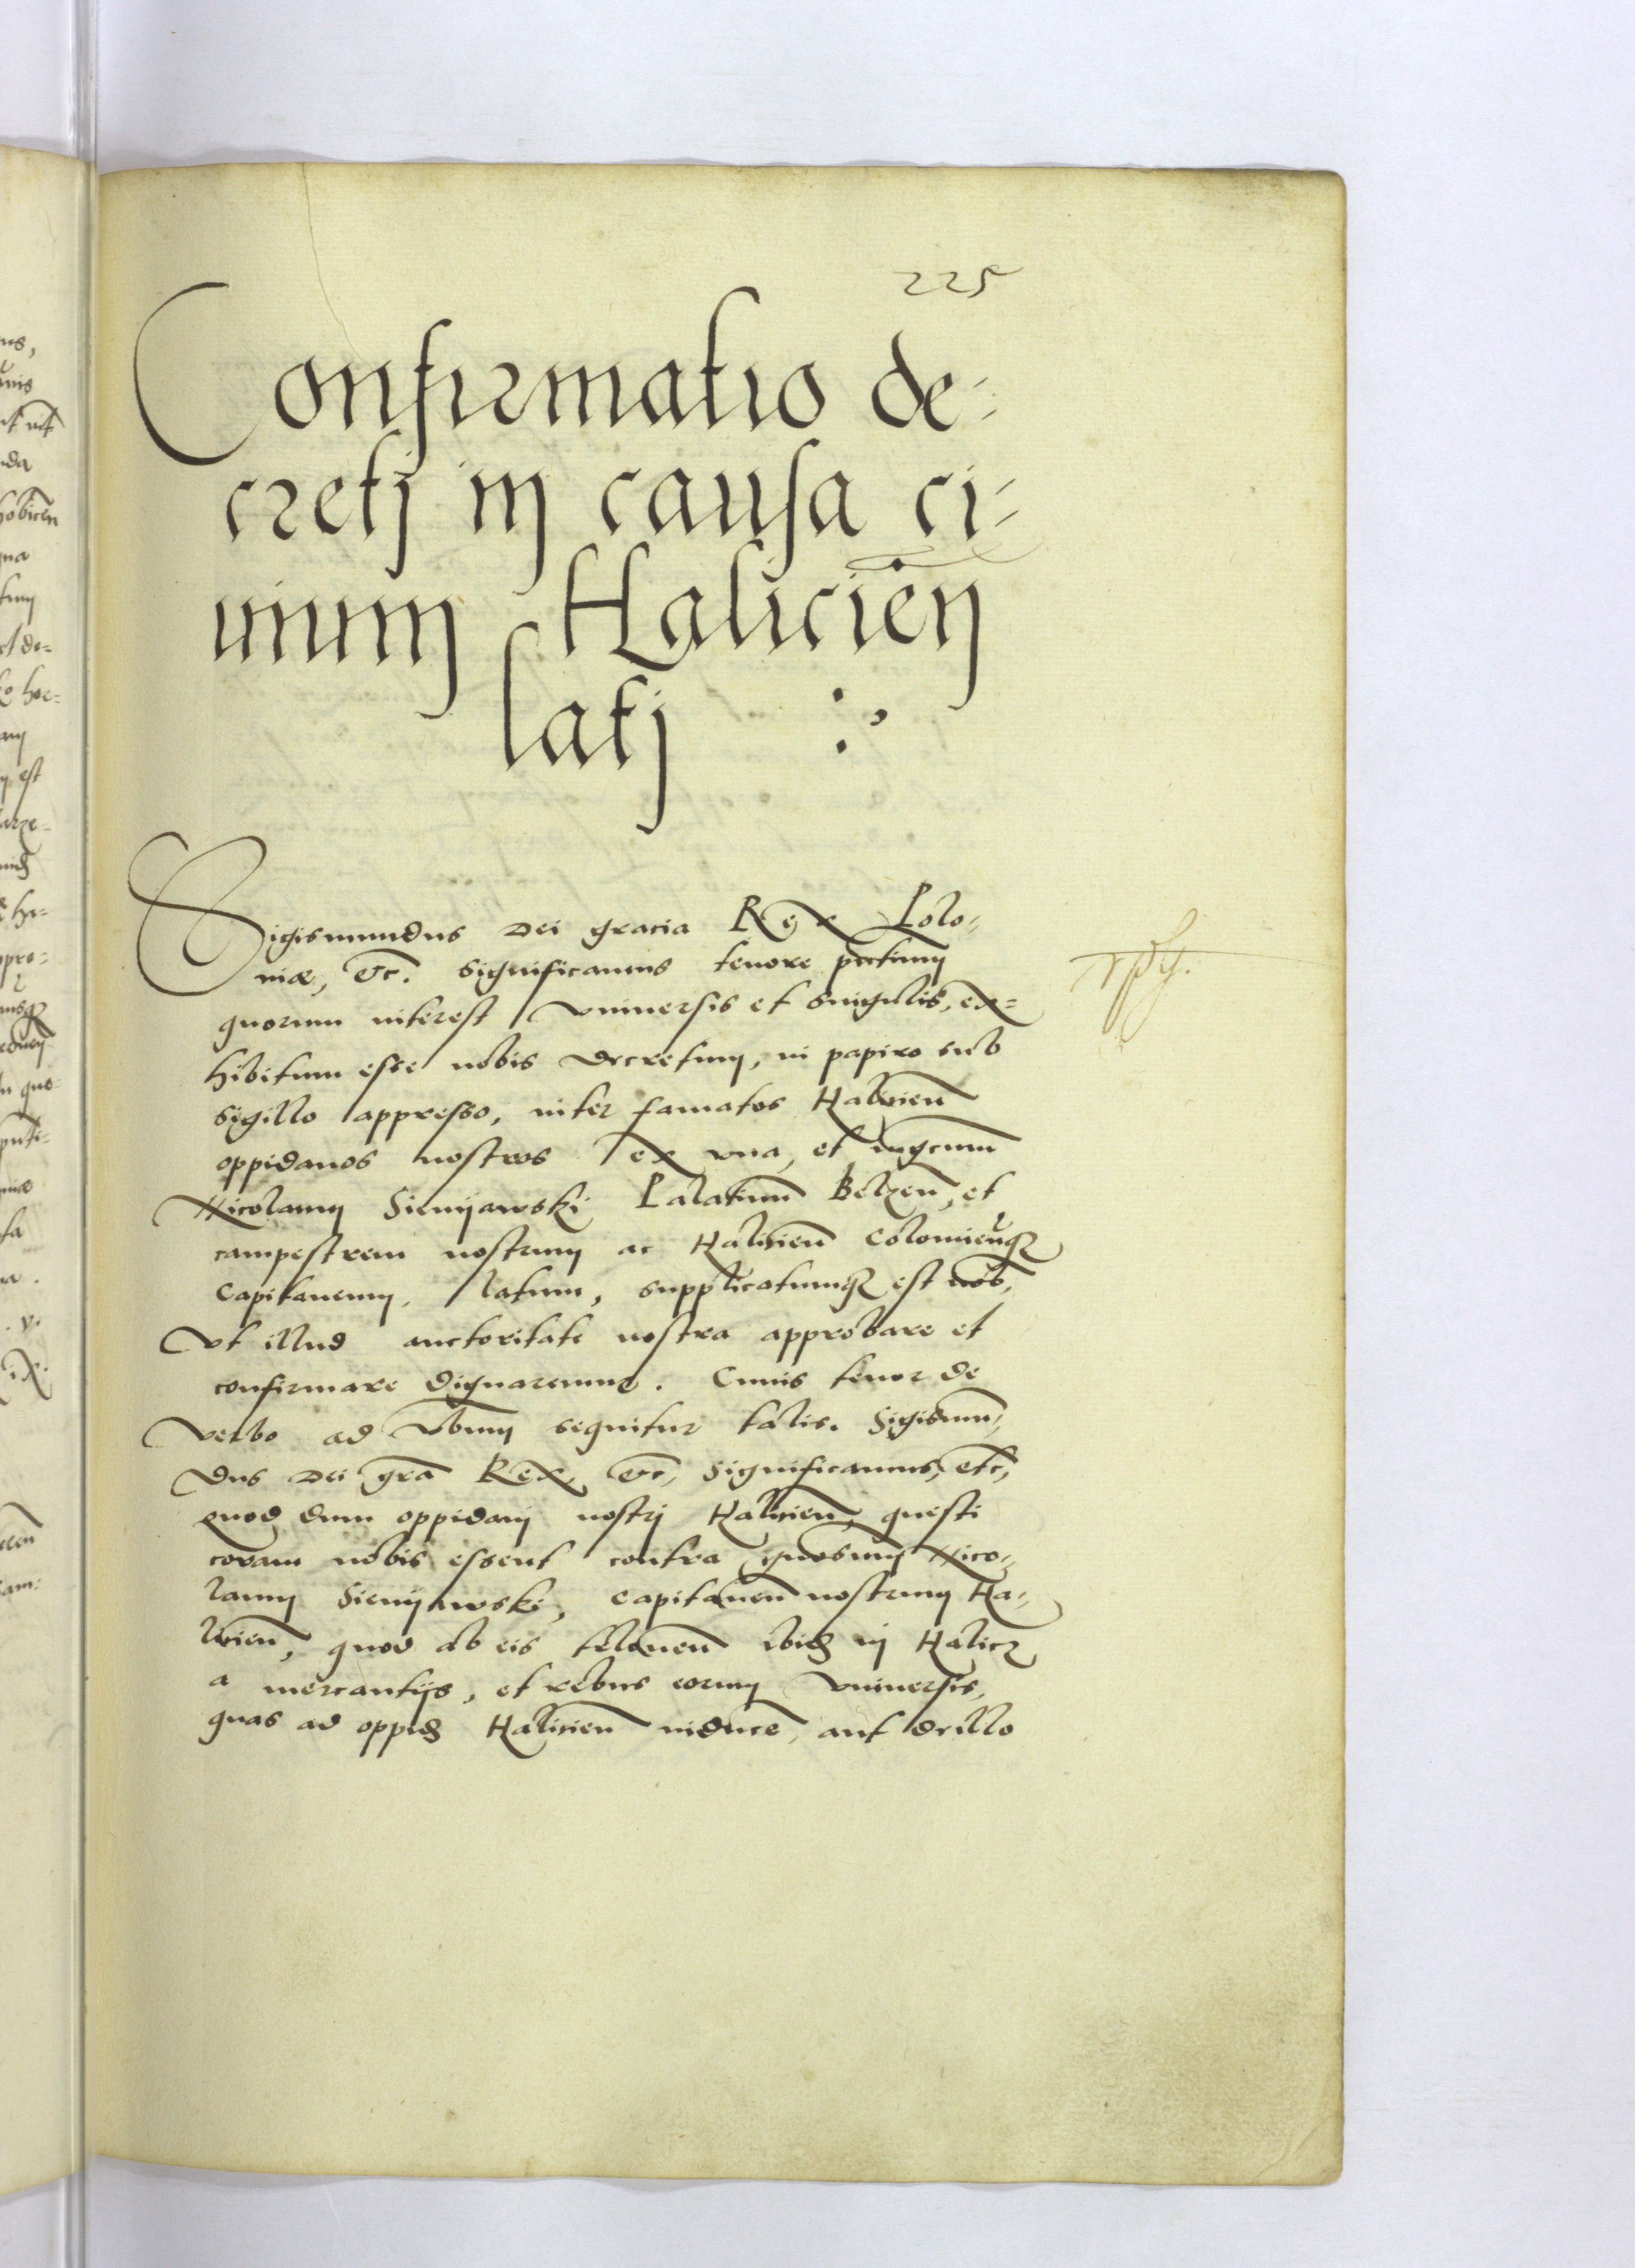 225
Confirmatio de-
cretj in causa ci-
uium Halicień
latj :,
Sigismundus Dei gracia Rex Polo-
niæ, etc. significamus tenore pñtium
quorum interest vniuersis et singulis, ex-
hibitum esse nobis decretum, in papiro sub
sigillo appresso, inter famatos Halicień
oppidanos nostros ex vna, et mgcum
Nicolaum Sienijawski Palatinum Belzeñ, et
campestrem nostrum ac Halicień Colomieñqz
Capitaneum, latum, supplicatumqz est nob,
Vt illud auctoritate nostra approbare et
confirmare dignaremur. Cuius tenor de
verbo ad vbum sequitur talis. Sigismun-
dus Dei gra Rex, etc, significamus, etc,
quod dum oppidanj nostrj Halicień, questi
coram nobis essent contra gnosum Nico-
laum Sienijawski, Capitaneū nostrum Ha-
licień, quod ab eis teloneū ibid in Halicz
a mercantijs, et rebus eorum vniuersis,
quas ad oppid Halicień inducē, aut de illo